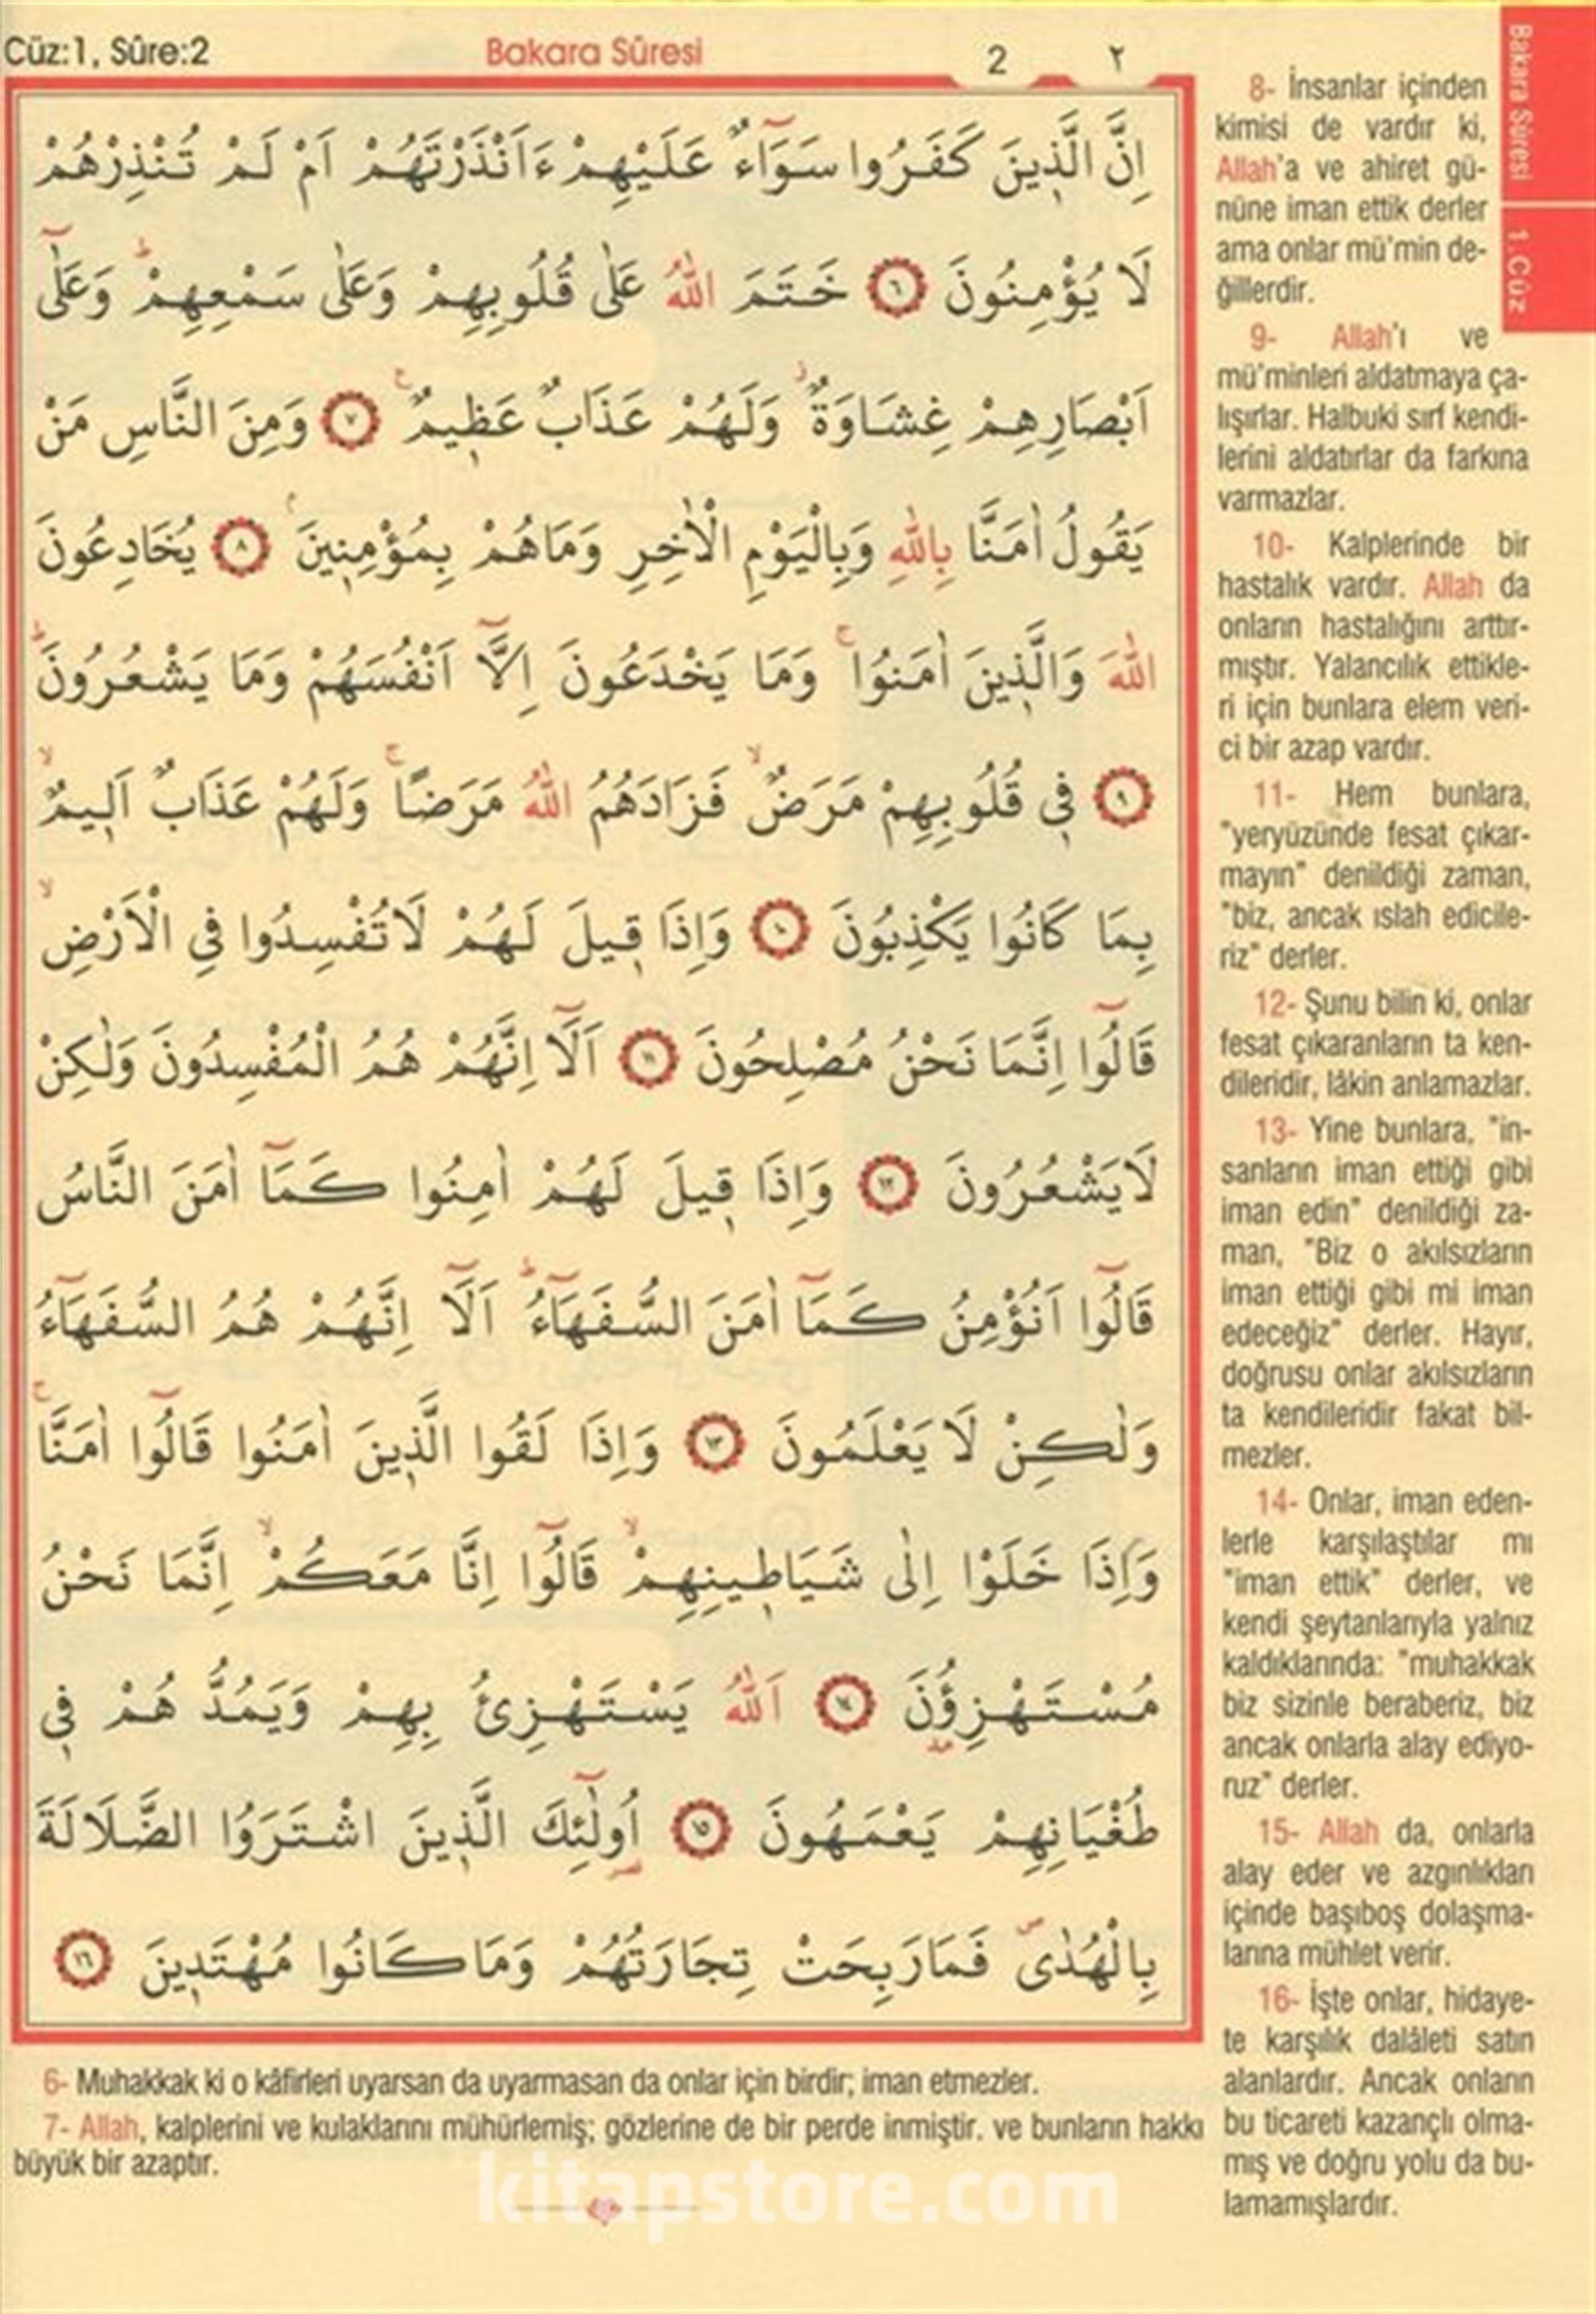 Cüz:1, Sûre:2
Bakara Sûresi
2
٢
Bakara Sûresi
1. Cüz
اِنَّ الَّذ۪ينَ كَفَرُوا سَوَٓاءٌ عَلَيْهِمْ ءَاَنْذَرْتَهُمْ اَمْ لَمْ تُنْذِرْهُمْ
لَا يُؤْمِنُونَ ﴿٦﴾ خَتَمَ اللّٰهُ عَلٰى قُلُوبِهِمْ وَعَلٰى سَمْعِهِمْۜ وَعَلٰٓى
اَبْصَارِهِمْ غِشَاوَةٌۘ وَلَهُمْ عَذَابٌ عَظ۪يمٌ۟ ﴿٧﴾ وَمِنَ النَّاسِ مَنْ
يَقُولُ اٰمَنَّا بِاللّٰهِ وَبِالْيَوْمِ الْاٰخِرِ وَمَاهُمْ بِمُؤْمِن۪ينَۢ ﴿٨﴾ يُخَادِعُونَ
اللّٰهَ وَالَّذ۪ينَ اٰمَنُواۚ وَمَا يَخْدَعُونَ اِلَّٓا اَنْفُسَهُمْ وَمَا يَشْعُرُونَۜ
﴿٩﴾ ف۪ي قُلُوبِهِمْ مَرَضٌۙ فَزَادَهُمُ اللّٰهُ مَرَضًاۚ وَلَهُمْ عَذَابٌ اَل۪يمٌۙ
بِمَا كَانُوا يَكْذِبُونَ ﴿١٠﴾ وَاِذَا ق۪يلَ لَهُمْ لَاتُفْسِدُوا فِي الْاَرْضِۙ
قَالُٓوا اِنَّمَا نَحْنُ مُصْلِحُونَ ﴿١١﴾ اَلَٓا اِنَّهُمْ هُمُ الْمُفْسِدُونَ وَلٰكِنْ
لَايَشْعُرُونَ ﴿١٢﴾ وَاِذَا ق۪يلَ لَهُمْ اٰمِنُوا كَمَٓا اٰمَنَ النَّاسُ
قَالُٓوا اَنُؤْمِنُ كَمَٓا اٰمَنَ السُّفَهَٓاءُۜ اَلَٓا اِنَّهُمْ هُمُ السُّفَهَٓاءُ
وَلٰكِنْ لَا يَعْلَمُونَ ﴿١٣﴾ وَاِذَا لَقُوا الَّذ۪ينَ اٰمَنُوا قَالُٓوا اٰمَنَّاۚ
وَاِذَا خَلَوْا اِلٰى شَيَاط۪ينِهِمْۙ قَالُٓوا اِنَّا مَعَكُمْۙ اِنَّمَا نَحْنُ
مُسْتَهْزِؤُ۫نَ ﴿١٤﴾ اَللّٰهُ يَسْتَهْزِئُ بِهِمْ وَيَمُدُّ هُمْ ف۪ي
طُغْيَانِهِمْ يَعْمَهُونَ ﴿١٥﴾ اُو۬لٰٓئِكَ الَّذ۪ينَ اشْتَرَوُا الضَّلَالَةَ
بِالْهُدٰىۖ فَمَارَبِحَتْ تِجَارَتُهُمْ وَمَاكَانُوا مُهْتَد۪ينَ ﴿١٦﴾
6- Muhakkak ki o kâfirleri uyarsan da uyarmasan da onlar için birdir; iman etmezler.
7- Allah, kalplerini ve kulaklarını mühürlemiş; gözlerine de bir perde inmiştir. ve bunların hakkı
büyük bir azaptır.
8- İnsanlar içinden
kimisi de vardır ki,
Allah'a ve ahiret gü-
nüne iman ettik derler
ama onlar mü'min de-
ğillerdir.
9- Allah'ı ve
mü'minleri aldatmaya ça-
lışırlar. Halbuki sırf kendi-
lerini aldatırlar da farkına
varmazlar.
10- Kalplerinde bir
hastalık vardır. Allah da
onların hastalığını arttır-
mıştır. Yalancılık ettikle-
ri için bunlara elem veri-
ci bir azap vardır.
11- Hem bunlara,
"yeryüzünde fesat çıkar-
mayın" denildiği zaman,
"biz, ancak ıslah edicile-
riz" derler.
12- Şunu bilin ki, onlar
fesat çıkaranların ta ken-
dileridir, lâkin anlamazlar.
13- Yine bunlara, "in-
sanların iman ettiği gibi
iman edin" denildiği za-
man, "Biz o akılsızların
iman ettiği gibi mi iman
edeceğiz" derler. Hayır,
doğrusu onlar akılsızların
ta kendileridir fakat bil-
mezler.
14- Onlar, iman eden-
lerle karşılaştılar mı
"iman ettik" derler, ve
kendi şeytanlarıyla yalnız
kaldıklarında: "muhakkak
biz sizinle beraberiz, biz
ancak onlarla alay ediyo-
ruz" derler.
15- Allah da, onlarla
alay eder ve azgınlıkları
içinde başıboş dolaşma-
larına mühlet verir.
16- İşte onlar, hidaye-
te karşılık dalâleti satın
alanlardır. Ancak onların
bu ticareti kazançlı olma-
mış ve doğru yolu da bu-
lamamışlardır.
kitapstore.com